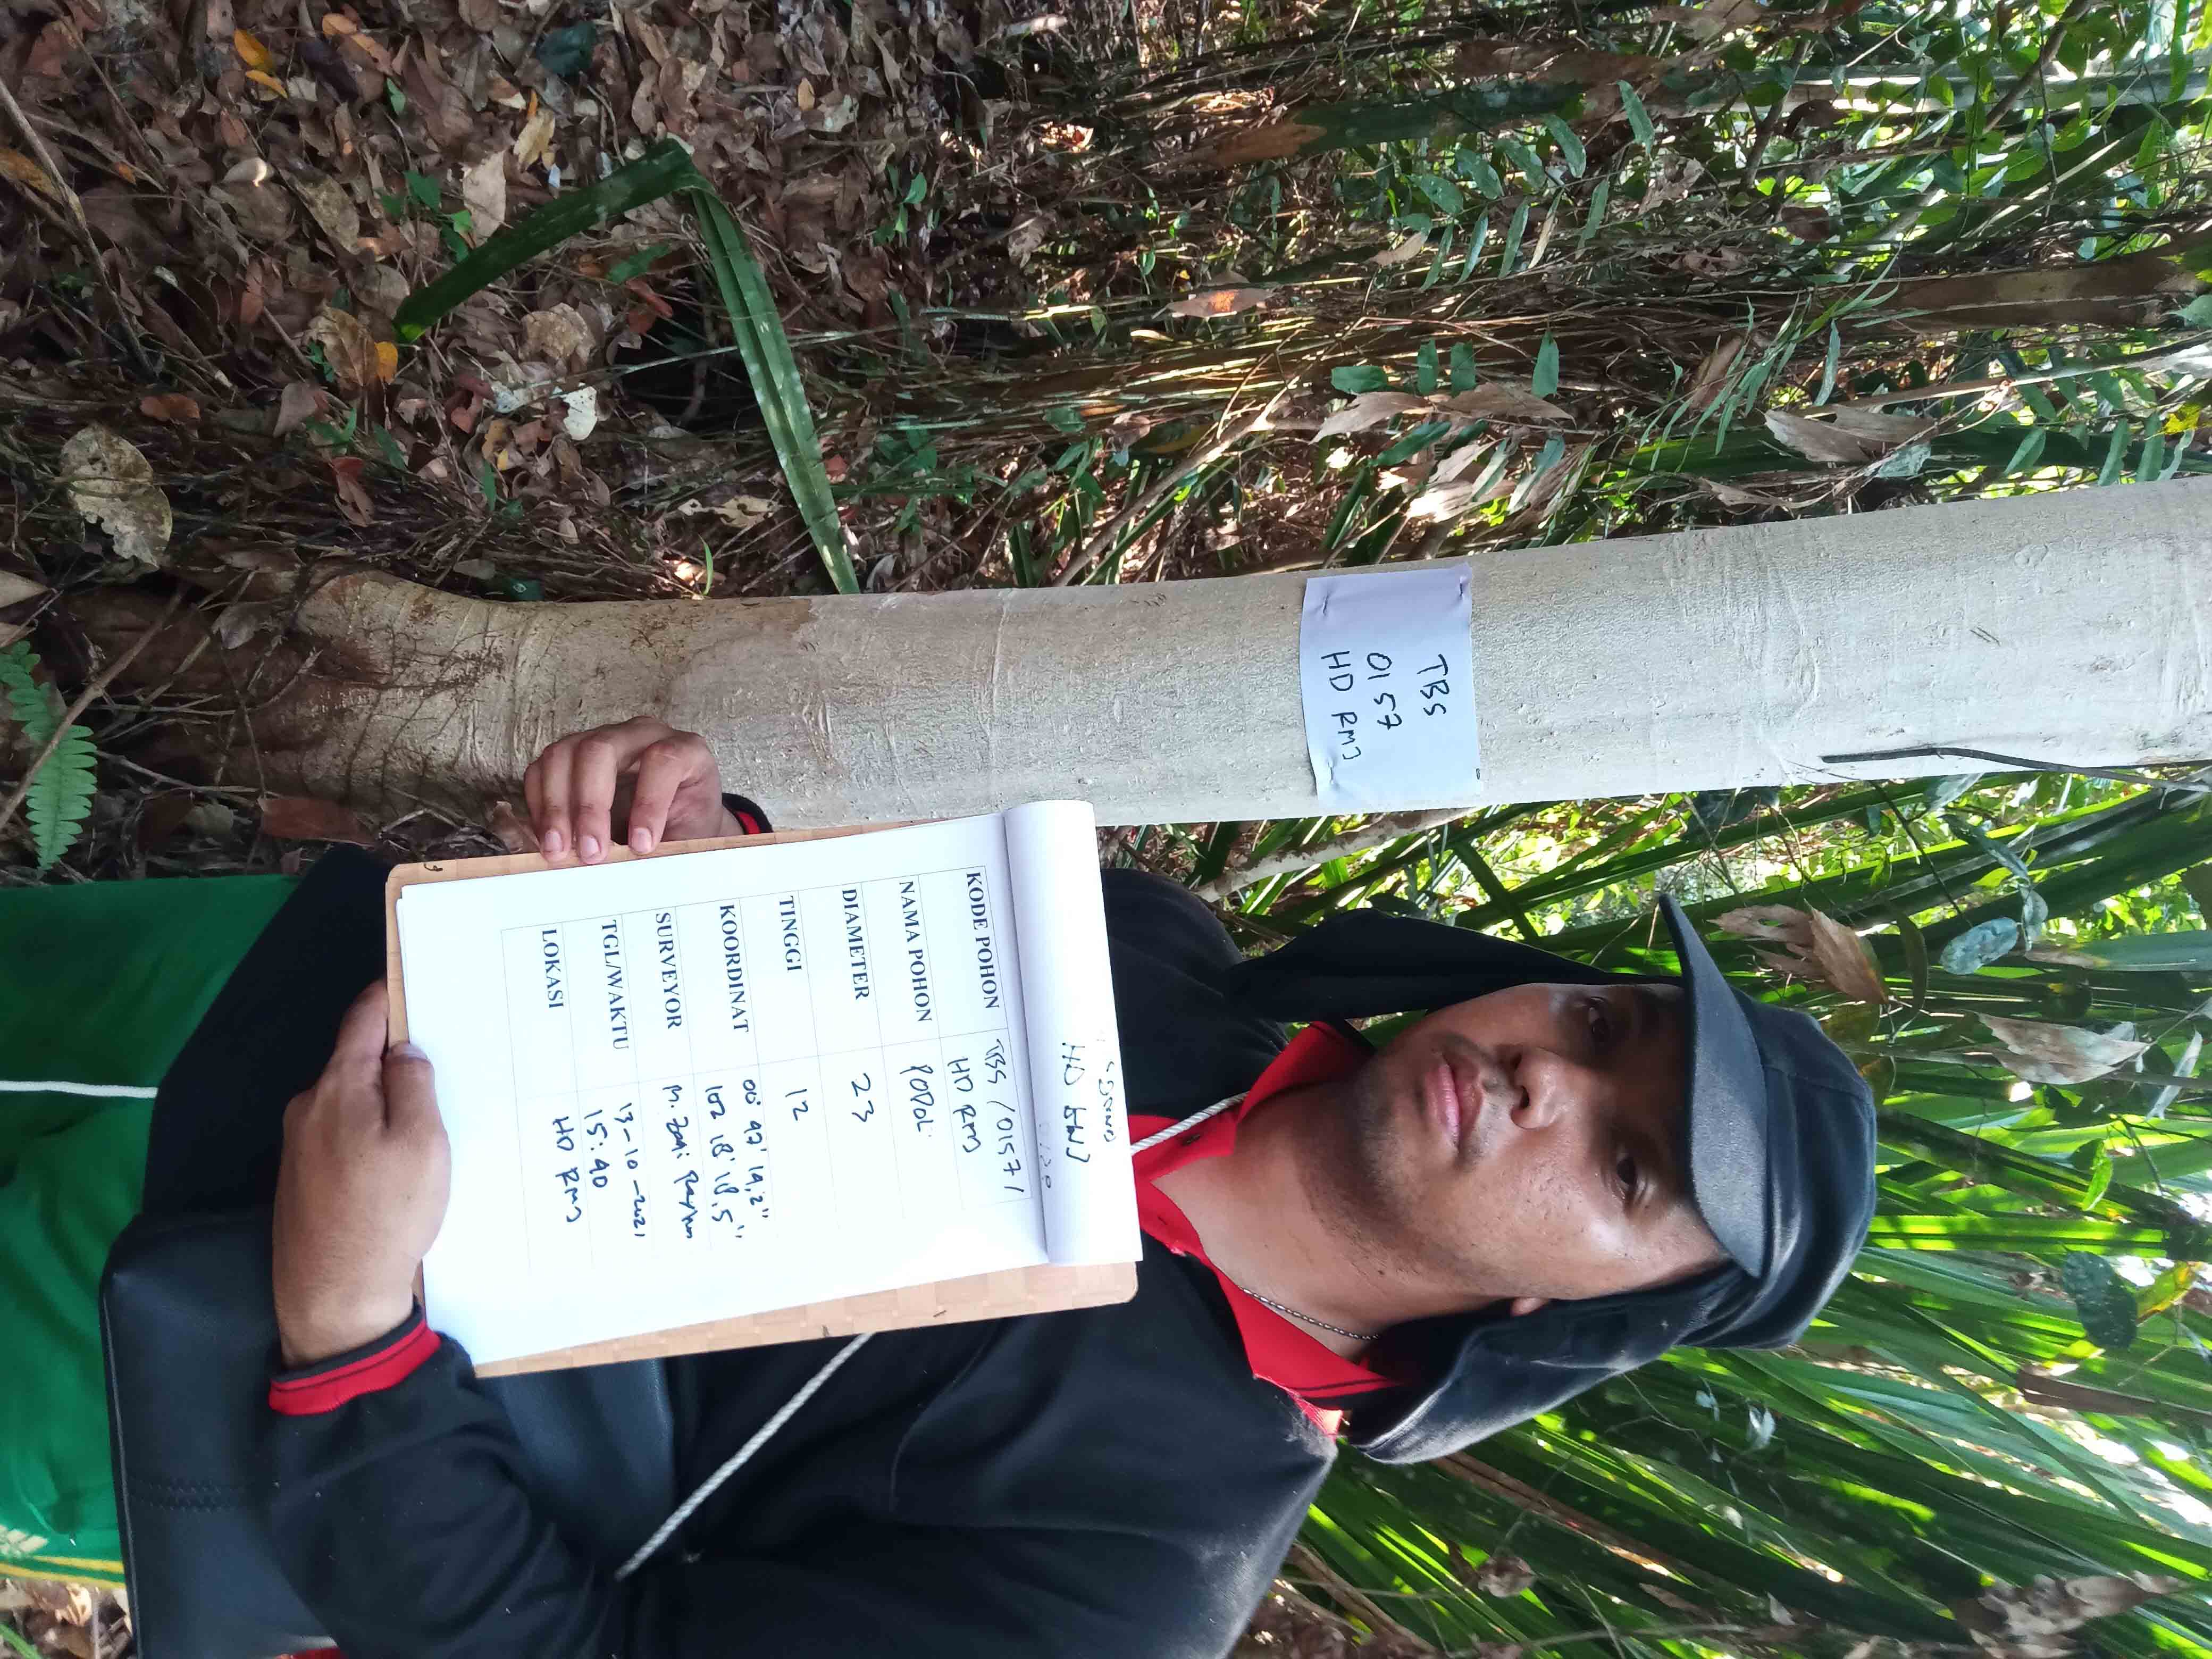 TBS
0157
HD RMJ
HD
KODE POHON TBS / 0157 /
HD RM
NAMA POHON PODOL
DIAMETER 23
TINGGI 12
KOORDINAT 00° 47' 14,2"
102 18' 18,5"
SURVEYOR M.
TGL/WAKTU 13-10-2021
15:40
LOKASI HD RMJ